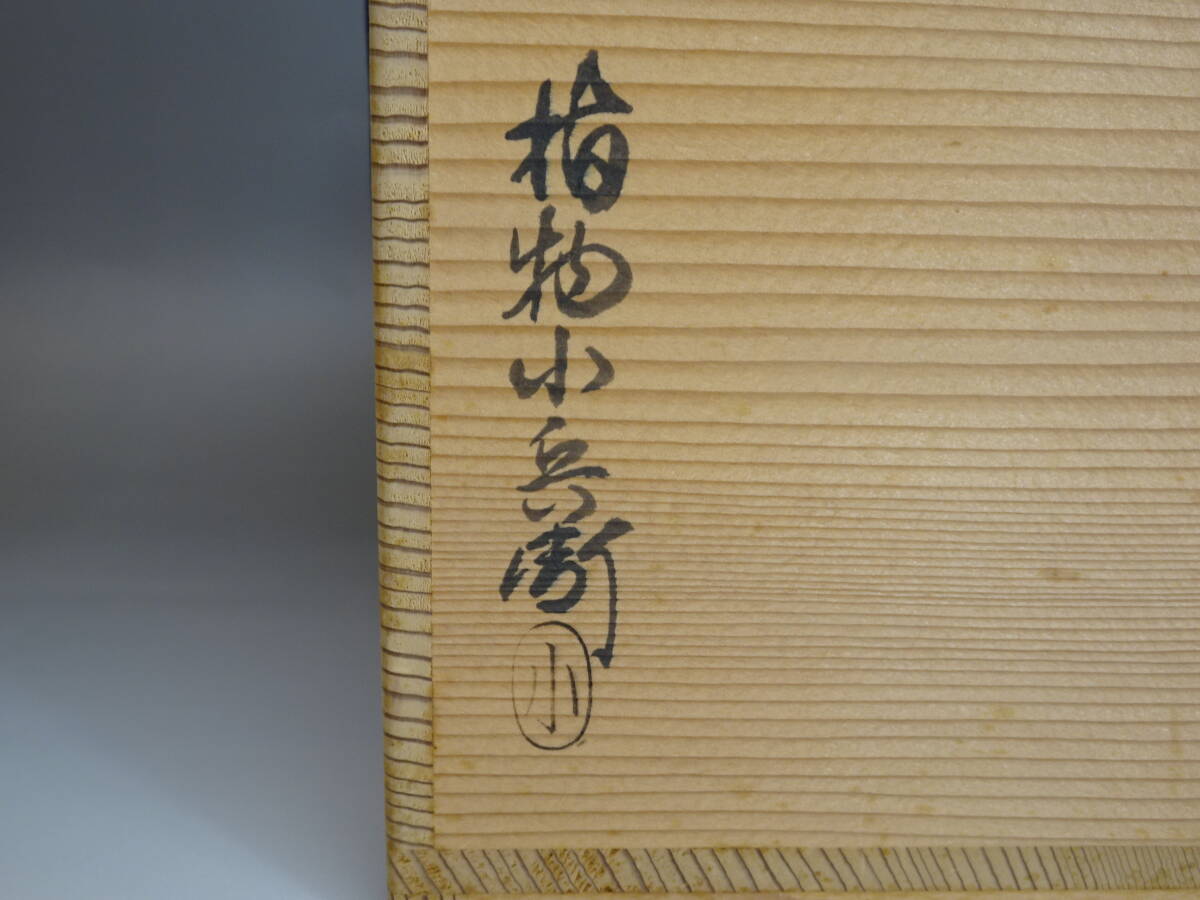 指物小兵衛
小